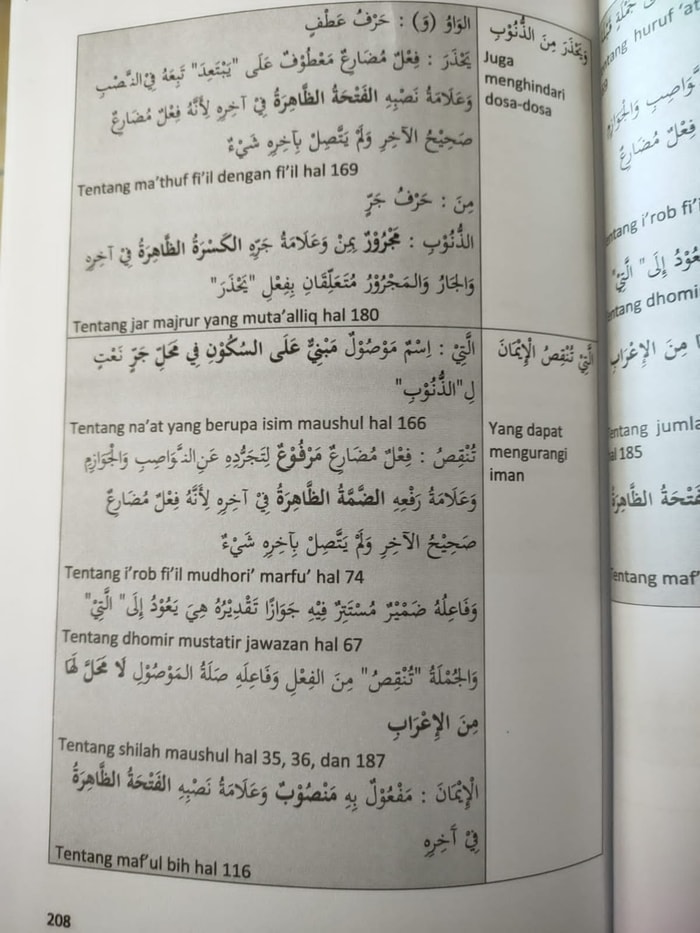 وَيَحْذَرَ مِنَ الذُّنُوْبِ
Juga
menghindari
dosa-dosa
الوَاوُ (وَ) : حَرْفُ عَطْفٍ
يَحْذَرَ : فِعْلٌ مُضَارِعٌ مَعْطُوْفٌ عَلَى "يَبْتَعِدَ" تَبِعَهُ فِي النَّصْبِ
وَعَلَامَةُ نَصْبِهِ الفَتْحَةُ الظَّاهِرَةُ فِيْ آخِرِهِ لِأَنَّهُ فِعْلٌ مُضَارِعٌ
صَحِيْحُ الآخِرِ وَلَمْ يَتَّصِلْ بِآخِرِهِ شَيْءٌ
Tentang ma'thuf fi'il dengan fi'il hal 169
مِنَ : حَرْفُ جَرٍّ
الذُّنُوْبِ : مَجْرُوْرٌ بِمِنْ وَعَلَامَةُ جَرِّهِ الكَسْرَةُ الظَّاهِرَةُ فِيْ آخِرِهِ
وَالجَارُ وَالمَجْرُوْرُ مُتَعَلِّقَانِ بِفِعْلِ "يَحْذَرَ"
Tentang jar majrur yang muta'alliq hal 180
الَّتِيْ تُنْقِصُ الْإِيْمَانَ
Yang dapat
mengurangi
iman
الَّتِيْ : اِسْمٌ مَوْصُوْلٌ مَبْنِيٌّ عَلَى السُّكُوْنِ فِي مَحَلِّ جَرٍّ نَعْتٍ
لِـ"الذُّنُوْبِ"
Tentang na'at yang berupa isim maushul hal 166
تُنْقِصُ : فِعْلٌ مُضَارِعٌ مَرْفُوْعٌ لِتَجَرُّدِهِ عَنِ النَّوَاصِبِ وَالْجَوَازِمِ
وَعَلَامَةُ رَفْعِهِ الضَّمَّةُ الظَّاهِرَةُ فِيْ آخِرِهِ لِأَنَّهُ فِعْلٌ مُضَارِعٌ
صَحِيْحُ الآخِرِ وَلَمْ يَتَّصِلْ بِآخِرِهِ شَيْءٌ
Tentang i'rob fi'il mudhori' marfu' hal 74
وَفَاعِلُهُ ضَمِيْرٌ مُسْتَتِرٌ فِيْهِ جَوَازًا تَقْدِيْرُهُ هِيَ يَعُوْدُ إِلَى "الَّتِيْ"
Tentang dhomir mustatir jawazan hal 67
وَالجُمْلَةُ "تُنْقِصُ" مِنَ الفِعْلِ وَفَاعِلِهِ صِلَةُ المَوْصُوْلِ لَا مَحَلَّ لَهَا
مِنَ الإِعْرَابِ
Tentang shilah maushul hal 35, 36, dan 187
الْإِيْمَانَ : مَفْعُوْلٌ بِهِ مَنْصُوْبٌ وَعَلَامَةُ نَصْبِهِ الفَتْحَةُ الظَّاهِرَةُ
فِيْ آخِرِهِ
Tentang maf'ul bih hal 116
208
huruf 'at
فِعْلٌ مُضَارِعٌ
i'rob fi'i
يَعُوْدُ إِلَى "الَّتِيْ"
dhomi
مِنَ الإِعْرَابِ
jumla
185
الظَّاهِرَةُ
entang maf'